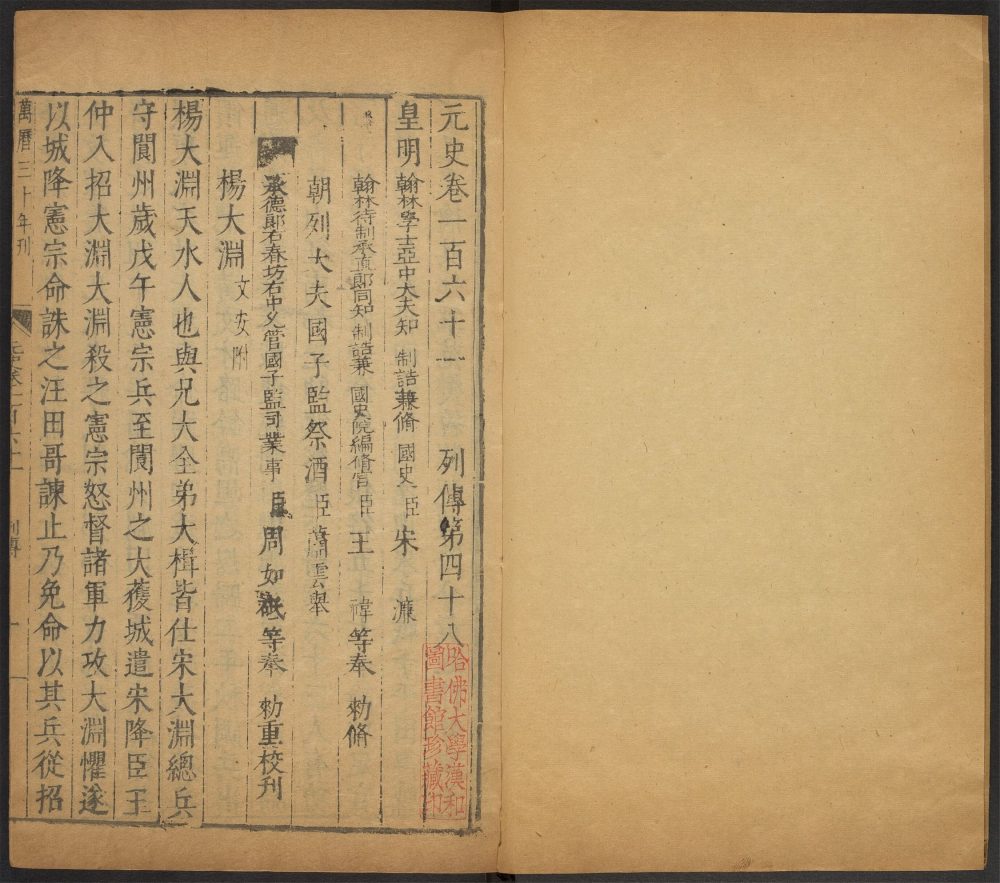 元史卷一百六十一 列傳第四十八
皇明翰林學士亞中大夫知 制誥兼脩 國史臣宋 濂
翰林待制承直郎同知 制誥兼 國史院編脩官臣王 禕等奉 勑脩
朝列大夫國子監祭酒臣蕭雲舉
承德郎右春坊右中允管國子監司業事臣周如砥等奉 勑重校刊
楊大淵 文安附
楊大淵天水人也與兄大全弟大楫皆仕宋大淵總兵
守閬州歲戊午憲宗兵至閬州之大獲城遣宋降臣王
仲入招大淵大淵殺之憲宗怒督諸軍力攻大淵懼遂
以城降憲宗命誅之汪田哥諫止乃免命以其兵從招
萬曆三十年刊
元史卷一百六十一
列傳
一
哈佛大學漢和
圖書館珍藏印